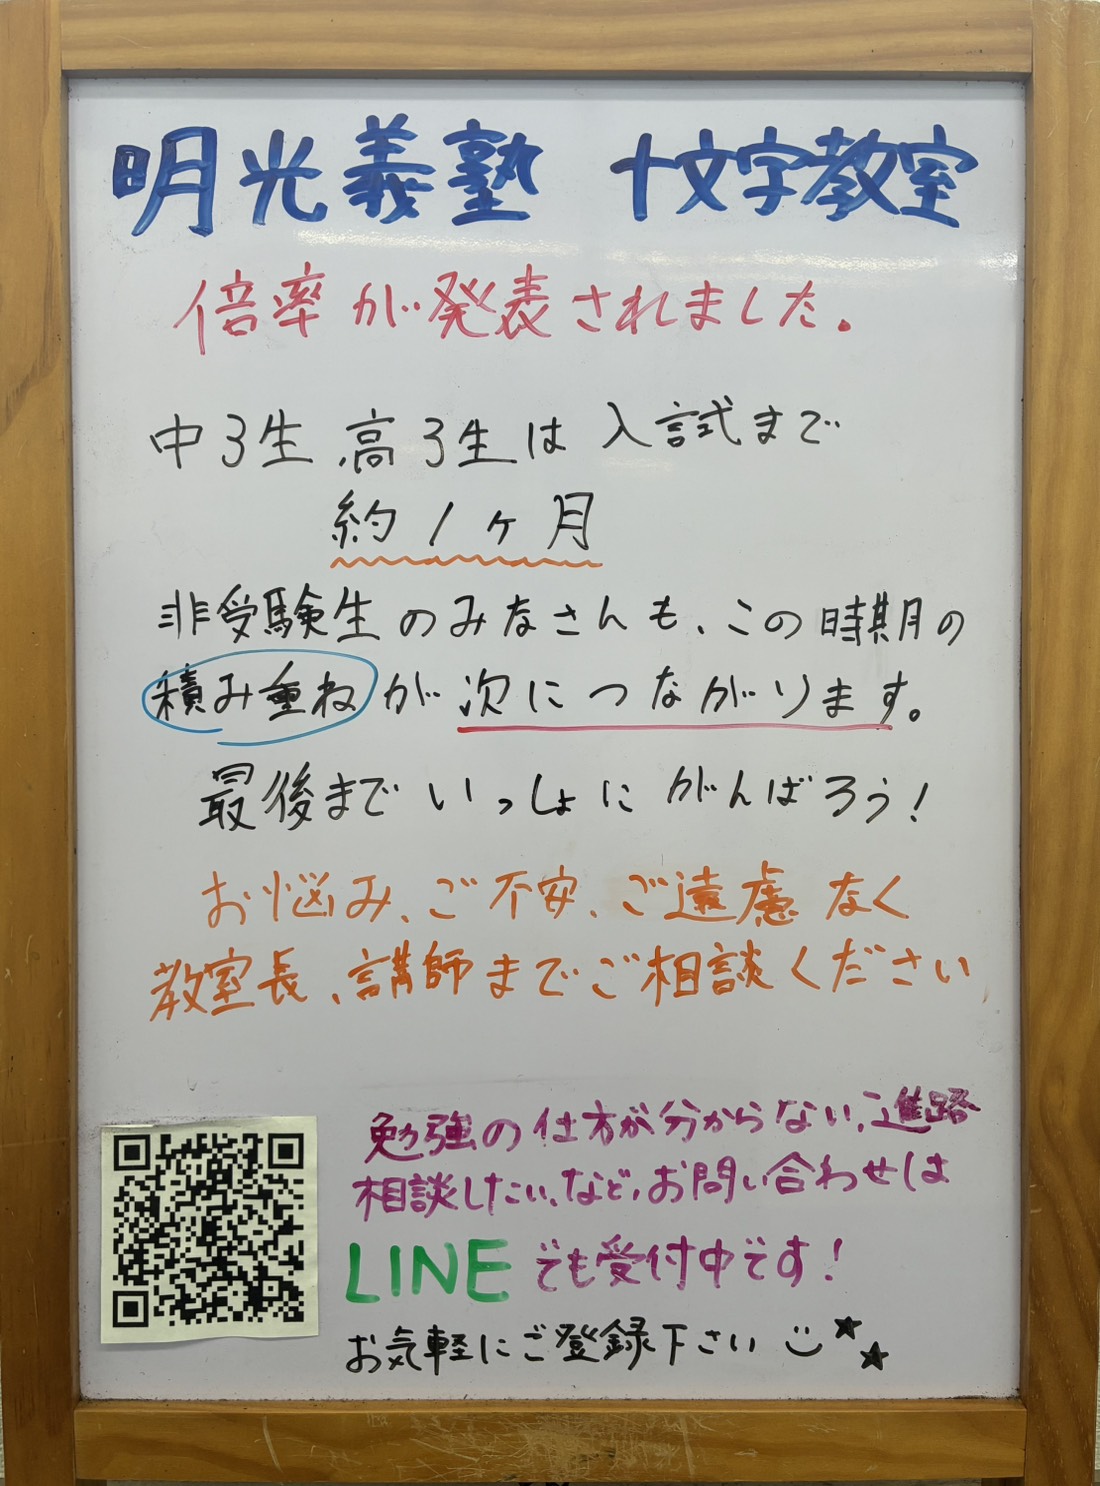 明光義塾 十文字教室
倍率が発表されました。
中3生、高3生は入試まで
約1ヶ月
非受験生のみなさんも、この時期の
積み重ねが次につながります。
最後までいっしょにがんばろう!
お悩み、ご不安、ご遠慮なく
教室長、講師までご相談ください。
勉強の仕方が分からない、進路
相談したい、など、お問い合わせは
LINEでも受付中です!
お気軽にご登録下さい